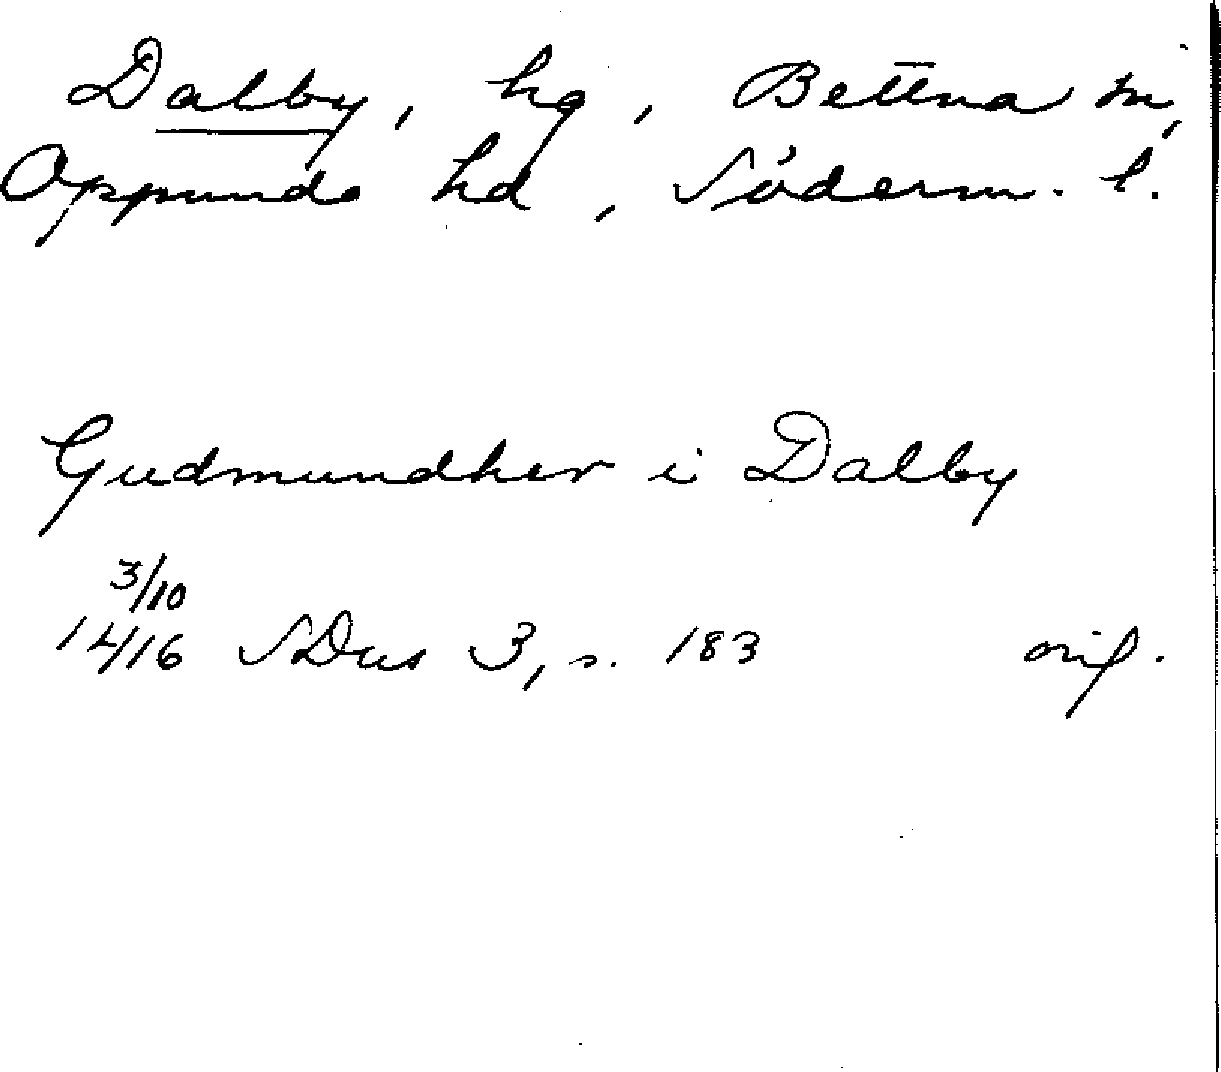 Dalby, hg, Bettna sn,
Oppunda hd, Söderm. l.
Gudmundher i Dalby
3/10
1416 SDns 3, s. 183 orig.